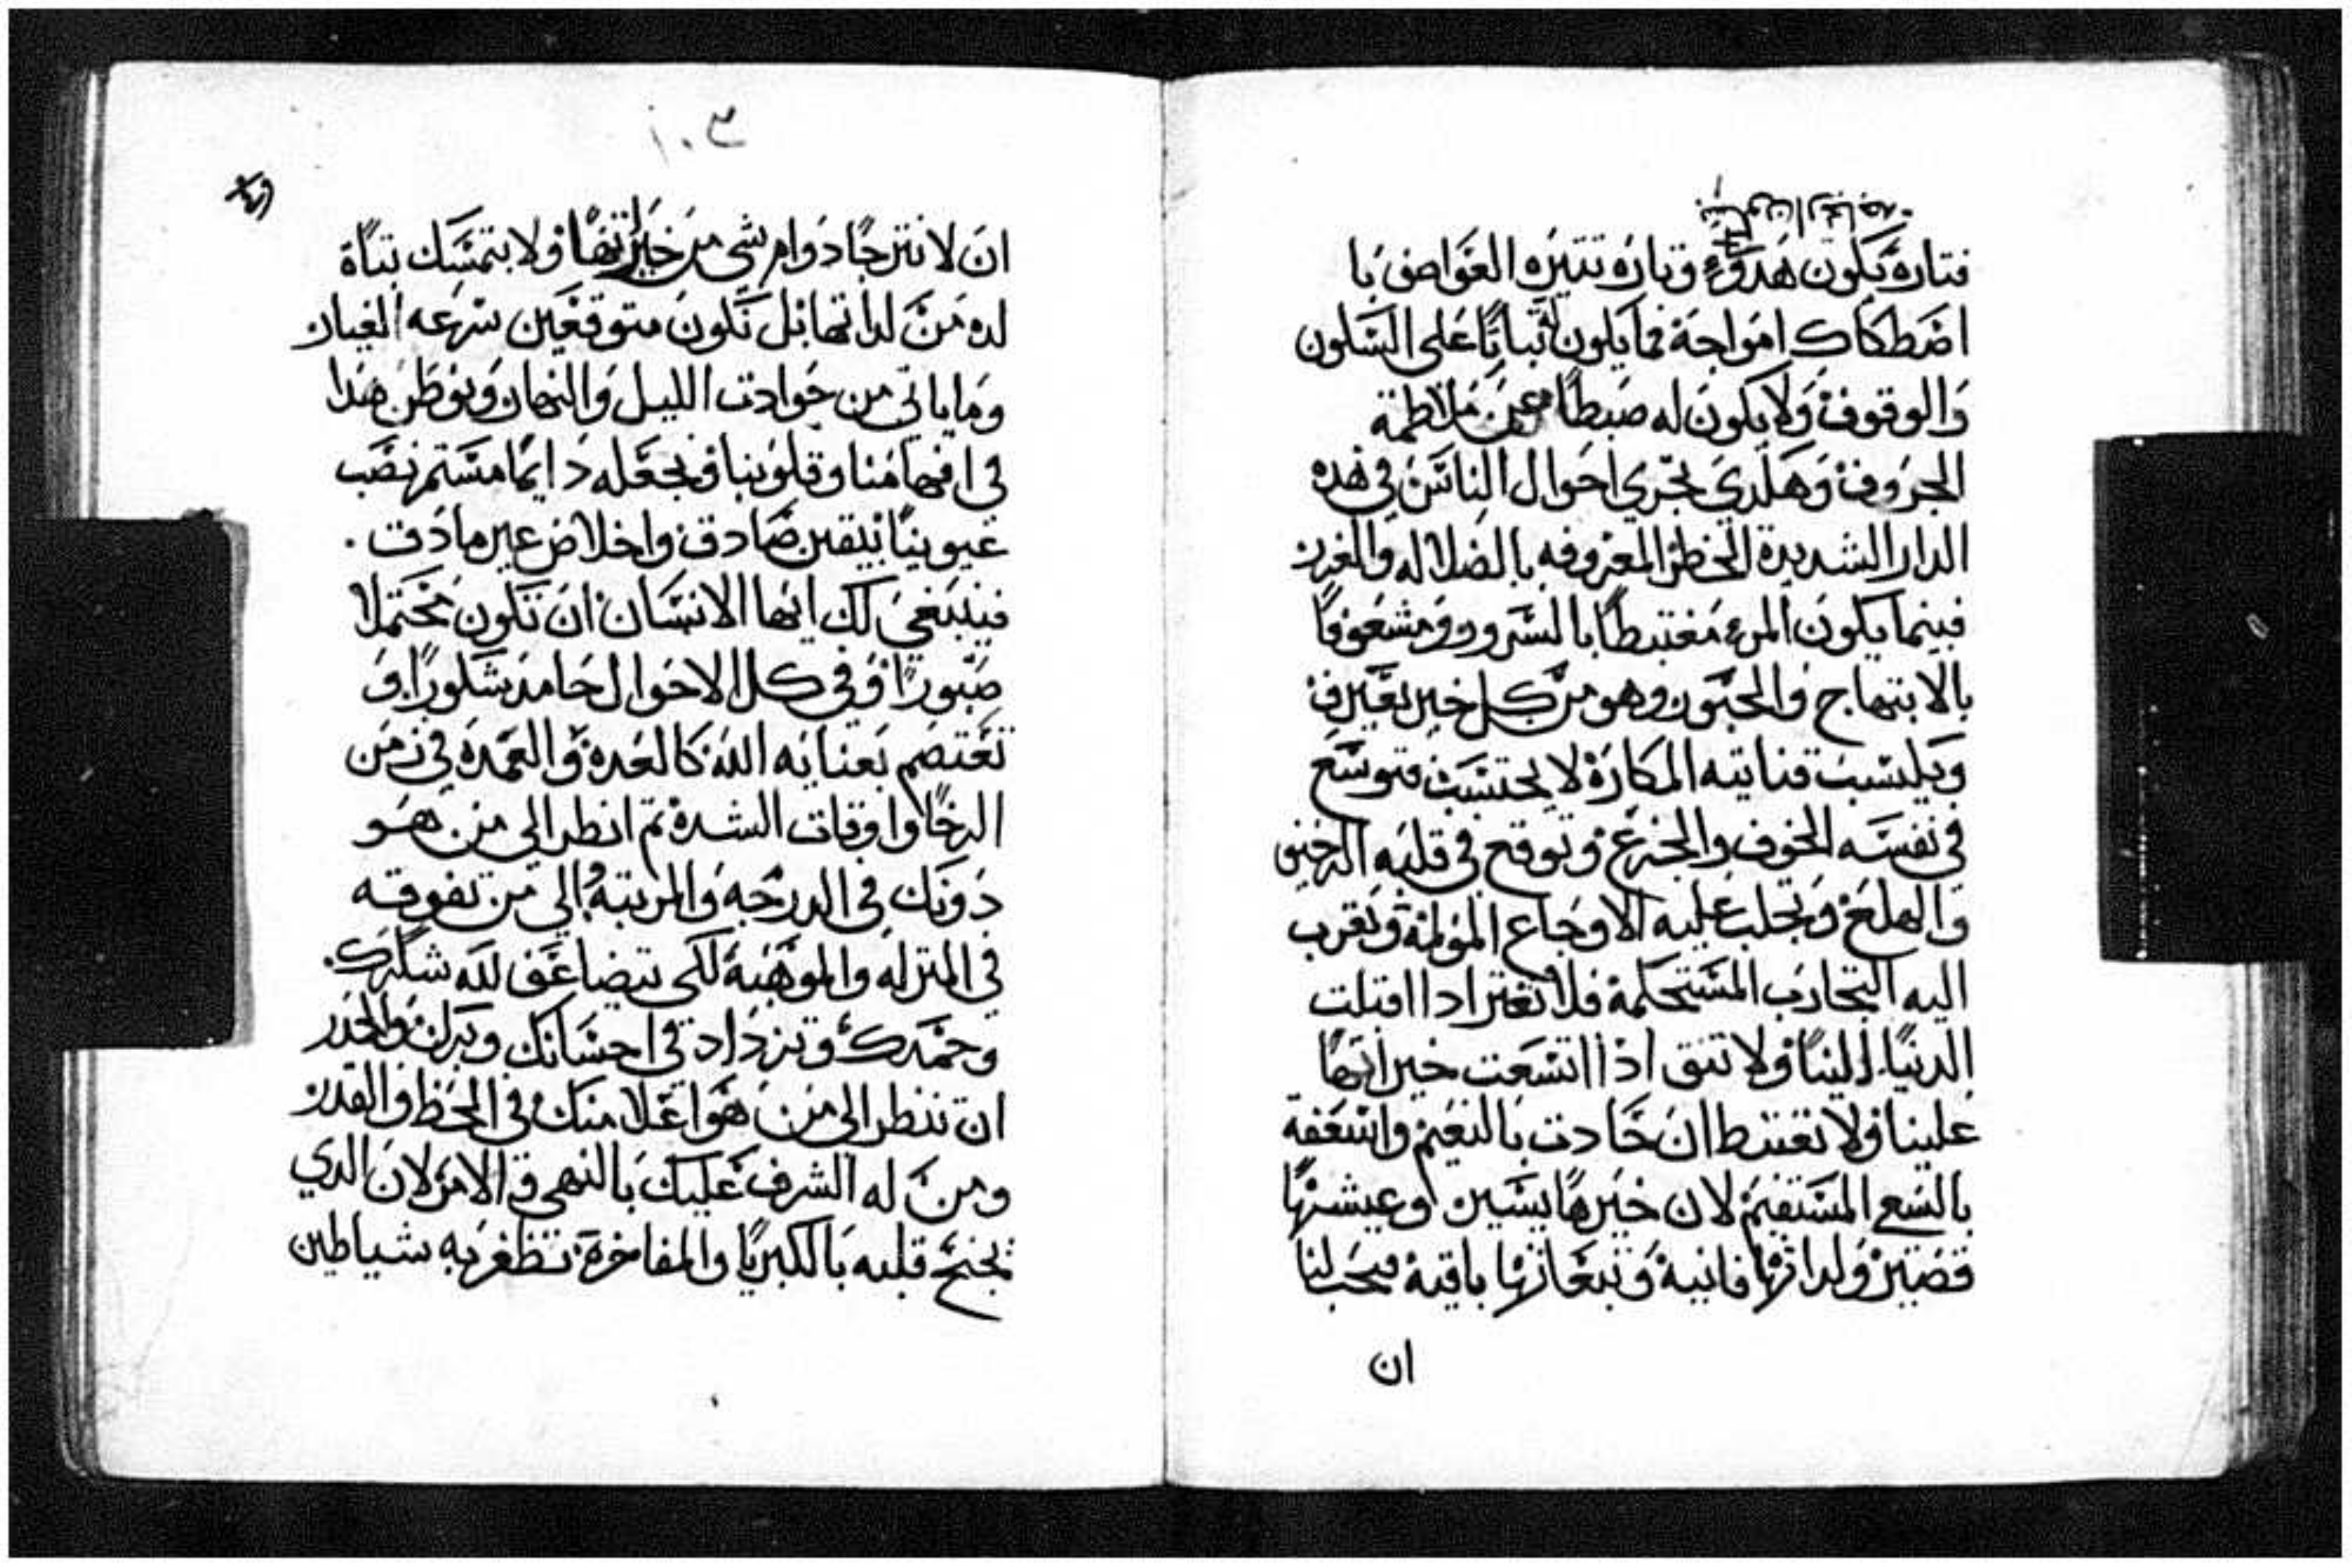 فتاره يكون هدوء وتاره تتيره العواصف با
اضطكاك امواجة فما يكون ثباتًا على السكون
والوقوف ولا يكون له ضبطًا عن ملاطمة
الجروف وهكدي تجري احوال الناس في هده
الدار الشديدة الخطر المعروفه بالضلاله والغرر
فبينما يكون المرء مغتبطًا بالسرور ومشعوفًا
بالابتهاج والحبور وهو من كل خير بغير في
المكاره لا يحتسب فتوسع
في نفسه الخوف والجزع وتوقع في قلبه
والهلع وتجلب عليه الاوجاع المولمة وتقرب
اليه التجارب المستحكمة فلا تغتر ادا اقبلت
الدنيا الينا ولا تتق اذا اتسعت خيراتها
علينا ولا تغتبط ان جادت بالنعيم واسعفة
بالتسع المستقيم لان خيرها يسير وعيشتها
قصير ولداتها فانية وتبعاتها باقية فيجب لنا
ان
١٠٣
ان لا نترجا دوام شي من خيراتها ولا نتمسك بتاة
لده من لداتها بل نكون متوقعين سرعه الغيار
وما ياتي من حوادت الليل والنهار ونوطن هدا
في افهامنا وقلوبنا ونجعله دايمًا مستمر نصب
عيوننا بيقين صادق واخلاص غير مادق .
فينبغي لك ايها الانسان ان تكون محتملا
صبورًا وفي كل الاحوال حامد شكورًا و
تعتصم بعنايه الله كالعدة والعمدة في زمن
الرخا واوقات الشدة تم انظر الي من هو
دونك في الدرجه والمرتبة الي من تفوقه
في المنزله والموهبة لكي تتضاعف لله شكرك.
وحمدك وتزداد في احسانك وبرك والحدر
ان تنظر الي من هو اعلا منك في الحظ والقدر
ومن له الشرف عليك بالنهي والامر لان الدي
يجنح قلبه بالكبريا والمفاخرة تظفر به شياطين